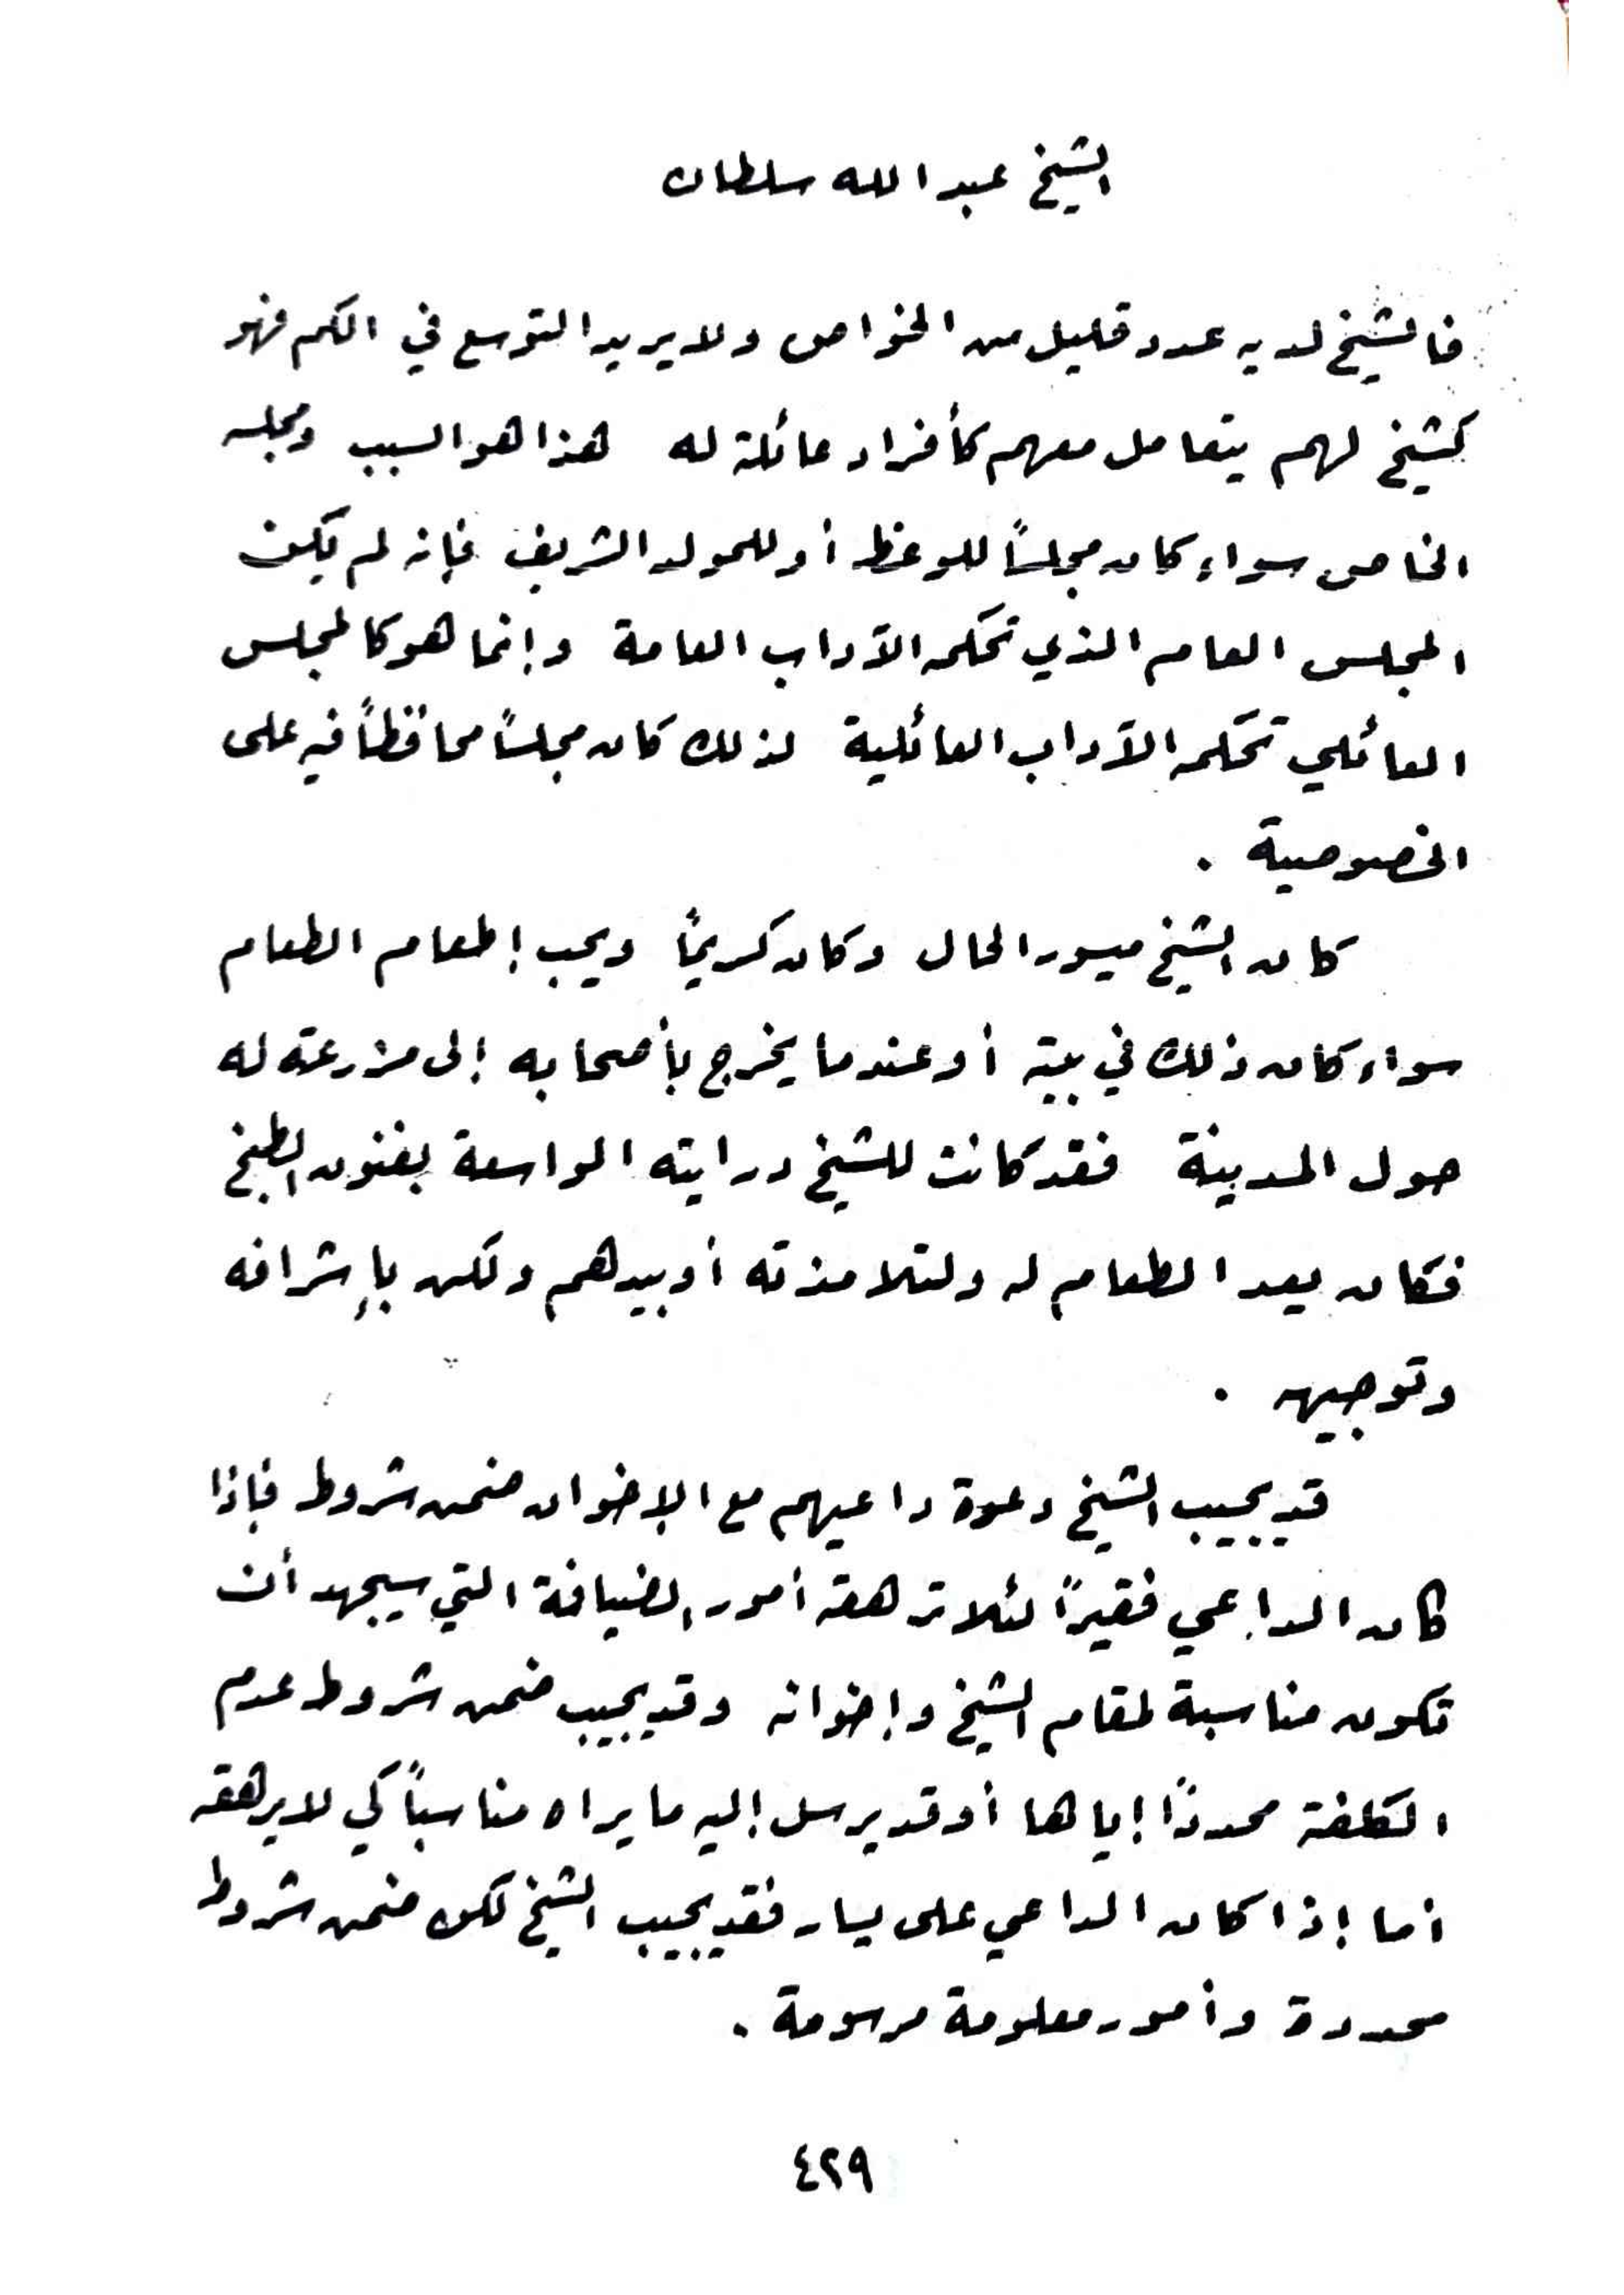 الشيخ عبد الله سلطان
فالشيخ لديه عدد قليل من الخواص ولا يريد التوسع في الكم فهو
كشيخ لهم يتعامل معهم كأفراد عائلة له هذا هو السبب ومجلسه
الخاص سواء كان مجلساً للوعظ أو للمولد الشريف فإنه لم يكن
المجلس العام الذي تحكمه الآداب العامة وإنما هو كالمجلس
العائلي تحكمه الآداب العائلية لذلك كان مجلساً محافظاً فيه على
الخصوصية .
كان الشيخ ميسور الحال وكان كريماً ويحب إطعام الطعام
سواء كان ذلك في بيته أو عندما يخرج بأصحابه إلى مزرعته له
حول المدينة فقد كانت للشيخ درايته الواسعة بفنون الطبخ
فكان يعد الطعام له ولتلامذته أو بيدهم ولكن بإشرافه
وتوجيهه .
قد يجيب الشيخ دعوة داعيهم مع الإخوان ضمن شروط فإذا
كان الداعي فقيراً لئلا ترهقه أمور الضيافة التي سيجهد أن
تكون مناسبة لمقام الشيخ وإخوانه وقد يجيب ضمن شروط عدم
الكلفة محدداً إياها أو قد يرسل إليه ما يراه مناسباً كي لا يرهقه
أما إذا كان الداعي على يسار فقد يجيب الشيخ لكن ضمن شروط
محددة وأمور معلومة مرسومة .
٤٢٩